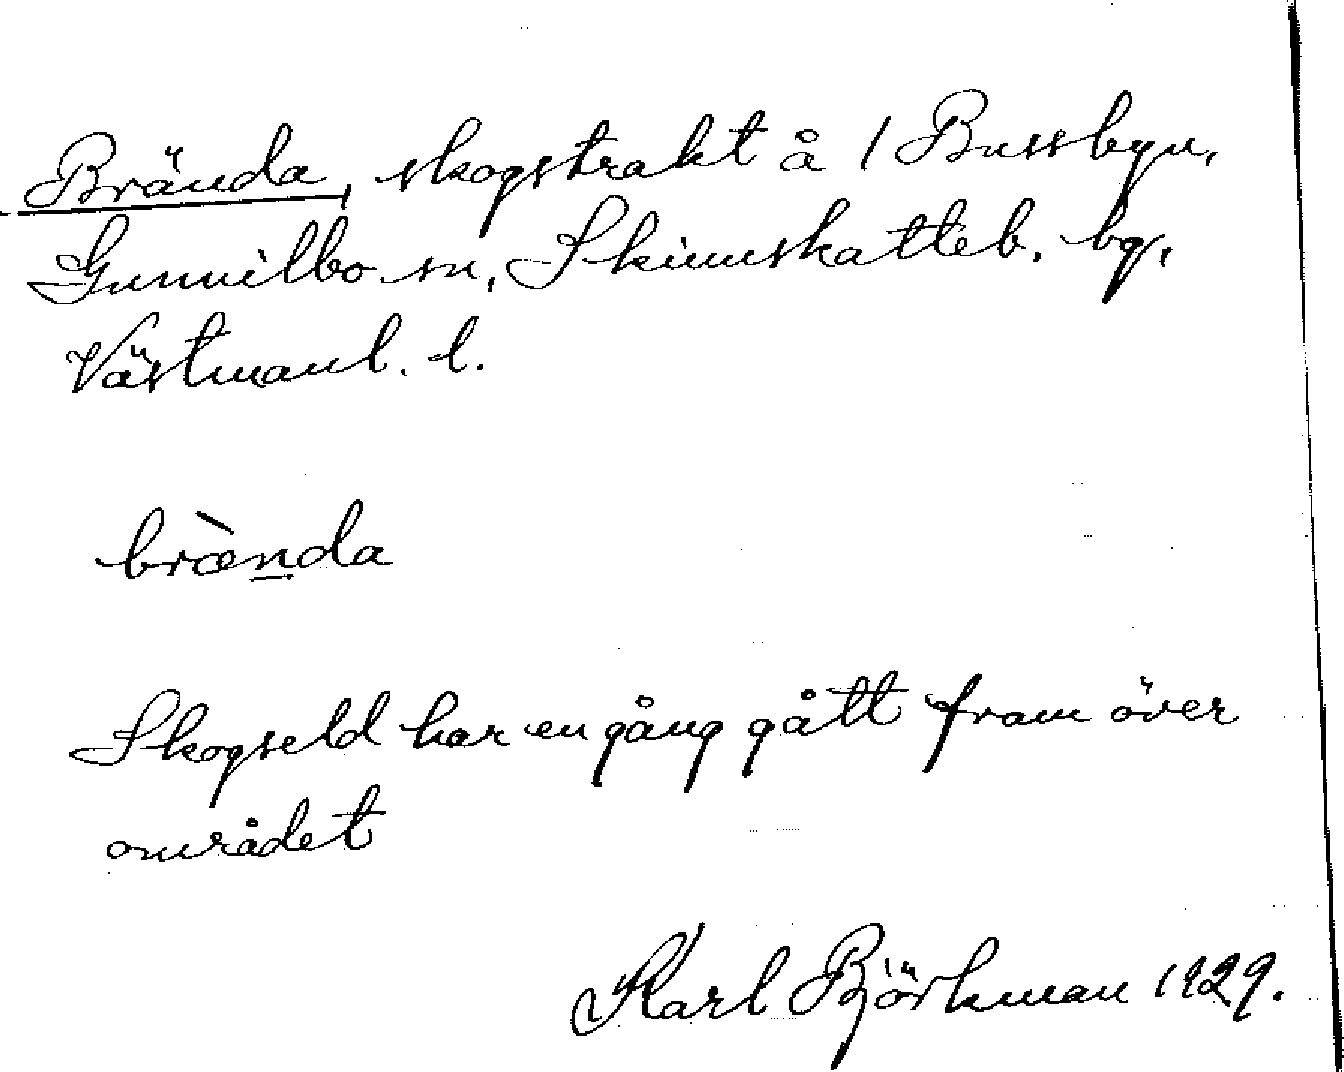 Brända, skogstrakt å 1 Bussbyn,
Gunnilbo sn, Skinnskatteb. bg,
Västmanl. l.
brænda
Skogseld har en gång gått fram över
området
Karl Björkman 1929.